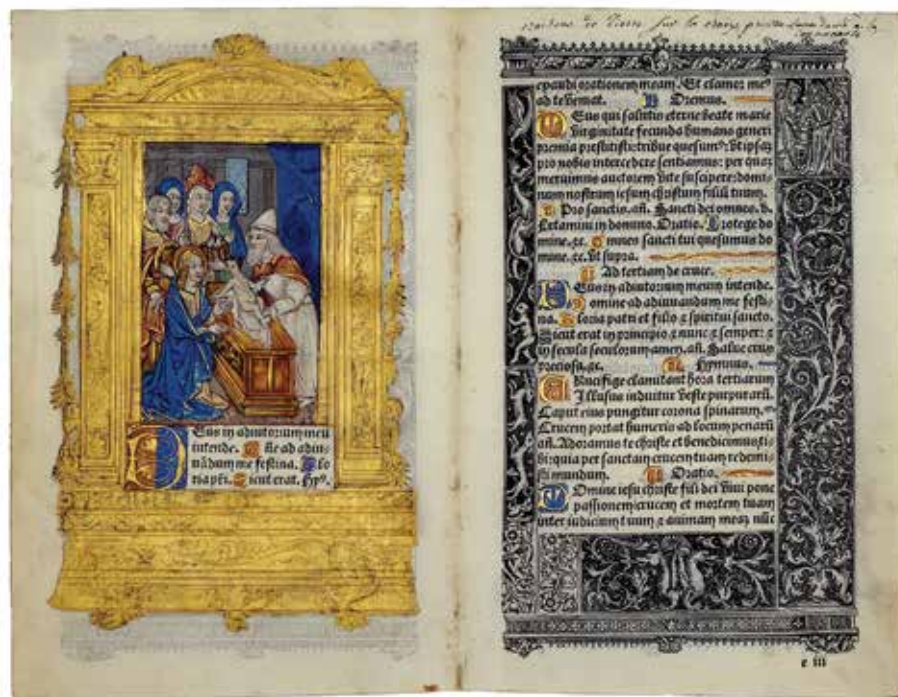 Eus in adiutorium meũ
intende. ñe ad adiu-
uãdum me festina. Glo
ria pr̃i. Sicut erat. Hy9.
sur la croix
exaudi orationem meam. Et clamor meꝰ
ad te veniat. Oremus.
Eus qui salutis eterne beate marie
virginitate fecunda humano generi
premia prestitisti: tribue quesumꝰ: vt ipsaꝫ
pro nobis intercedere sentiamus: per quaꝫ
meruimus auctorem vite suscipere: domi-
num nostrum iesum christum filiũ tuum.
Pro sanctis. añ. Sancti dei omnes. v.
Letamini in domino. Oratio. Protege do
mine. ⁊c. Omnes sancti tui quesumus do
mine. ⁊c. vt supra.
Ad tertiam de cruce.
Eus in adiutorium meum intende.
Domine ad adiuuandum me festi-
na. Gloria patri et filio ⁊ spiritui sancto.
Sicut erat in principio ⁊ nunc ⁊ semper: ⁊
in secula seculorum amen. añ. Salue crux
preciosa. ⁊c. Hymnus.
CRucifige clamitant hora tertiarum
Illusus induitur veste purpurarũ.
Caput eius pungitur corona spinarum.
Crucem portat humeris ad locum penarũ
añ. Adoramus te christe et benedicimus ti-
bi: quia per sanctam crucem tuam redemi-
sti mundum. Oratio.
Domine iesu christe fili dei viui pone
passionem crucem et mortem tuam
inter iudicium tuum ⁊ animam meaꝫ nũc
c iii